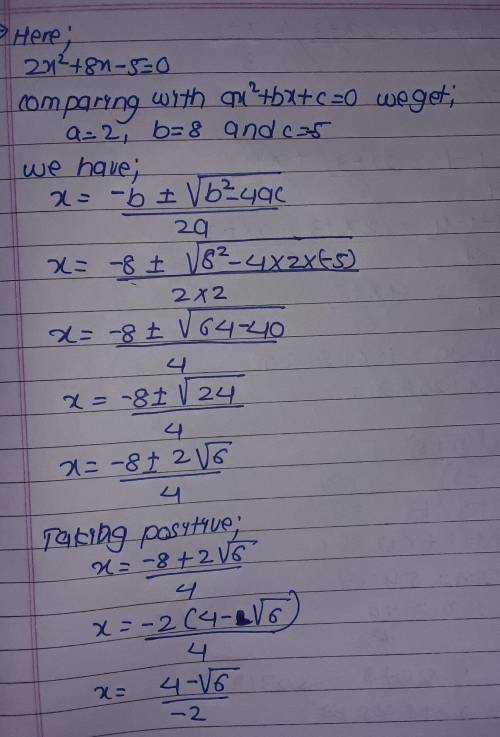 Here;
2x²+8x-5=0
comparing with ax²+bx+c=0 we get;
a=2, b=8 and c=5
we have;
x = -b ± √b²-4ac
2a
x = -8 ± √8²-4×2×(-5)
2×2
x = -8 ± √64-40
4
x = -8 ± √24
4
x = -8 ± 2√6
4
Taking positive;
x = -8+2√6
4
x = -2(4-√6)
4
x = 4-√6
-2